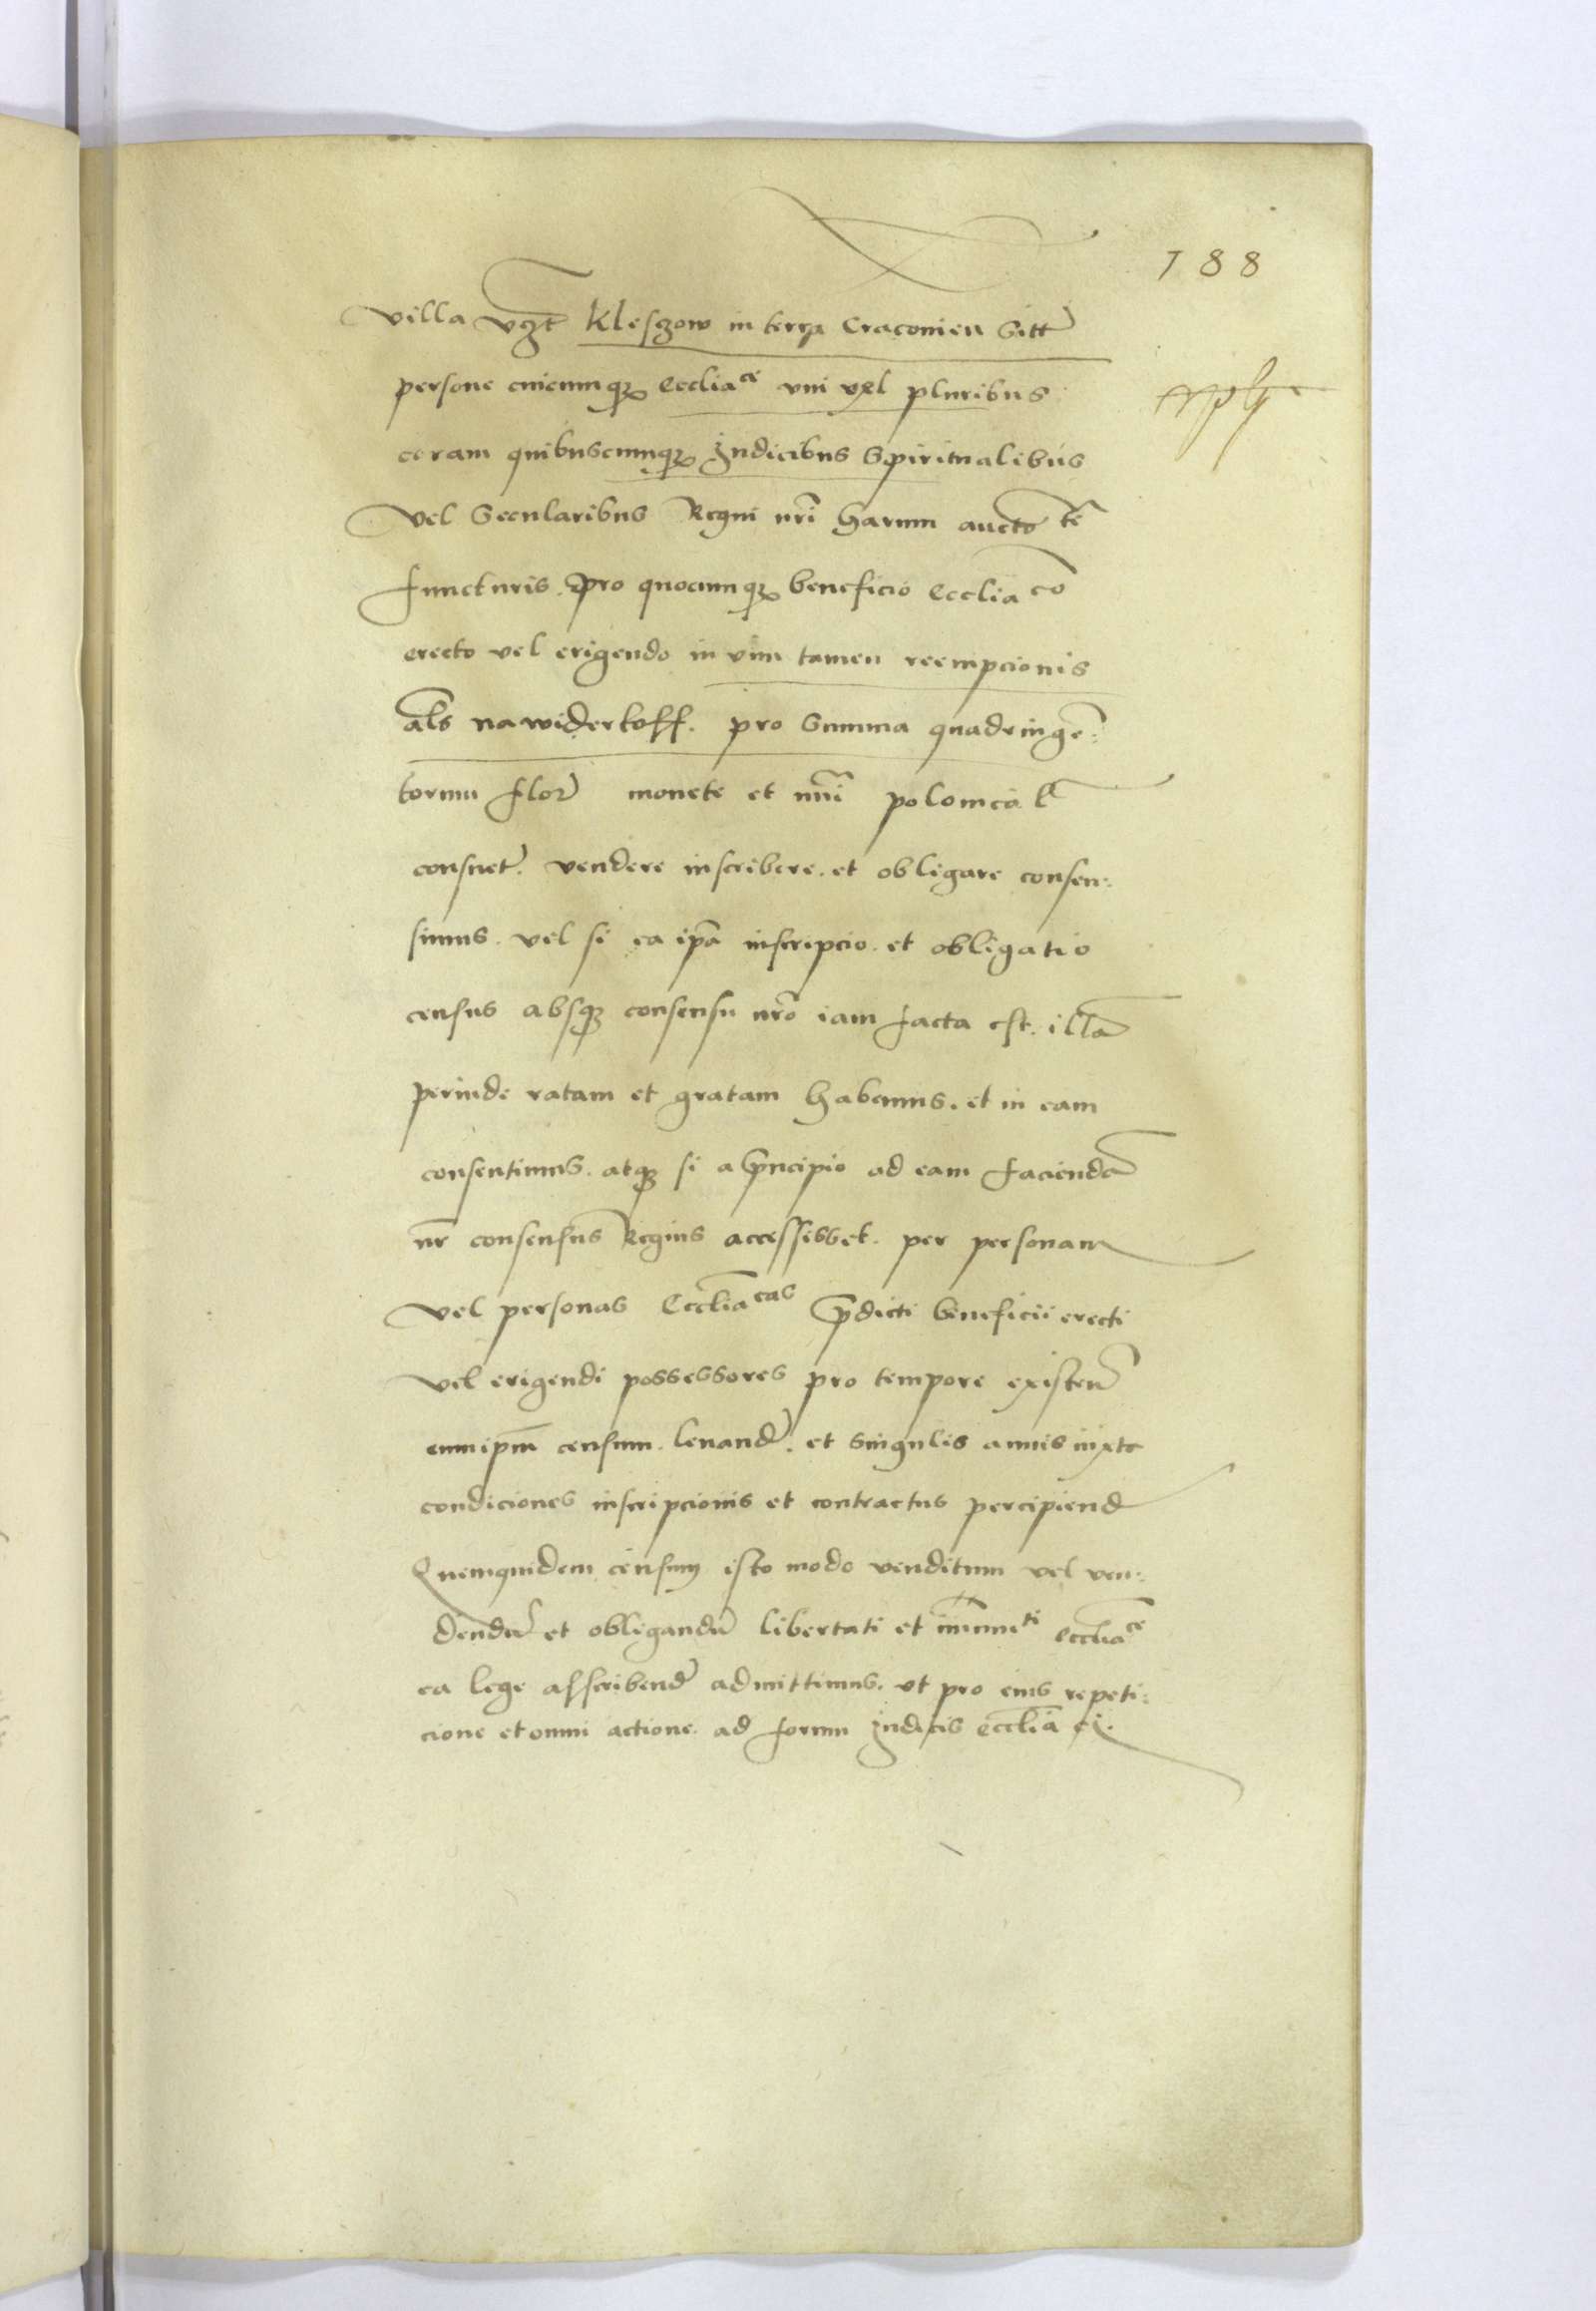 188
villa vʒt Kleszow in terra Cracovien̄ sitt
persone cuicumqʒ Eccliace vni vel pluribus
coram quibuscumqʒ Iudicibus Spiritualibus
vel Secularibus Regni nr̄i harum auctote
functuris. pro quocumqʒ beneficio Eccliaco
erecto vel erigendo in vim tamen reempcionis
al̄s nawiderkoff. pro summa quadringē:
torum flor monete et nūi polonical̄
consuet. vendere inscribere. et obligare consen:
simus. vel si ea ip̄a inscripcio. et obligatio
census absqʒ consensu nr̄o iam facta est. illā
perinde ratam et gratam habemus. et in eam
consentimus. atqʒ si a principio ad eam faciendā
nr̄ consensus Regius accessisset. per personam
vel personas Eccl̄iacas p̄dicti beneficii erecti
vel erigendi possessores pro tempore existen̄
eum ip̄m censum. levand. et singulis annis iuxta
condiciones inscripcionis et contractus percipiend
Quemquidem censum isto modo venditum vel ven:
dendū et obligandū libertati et im̄uniti eccl̄iace
ea lege asscribend admittimus. vt pro eius repeti:
cione et omni actione. ad forum Iudicis eccl̄iaci.